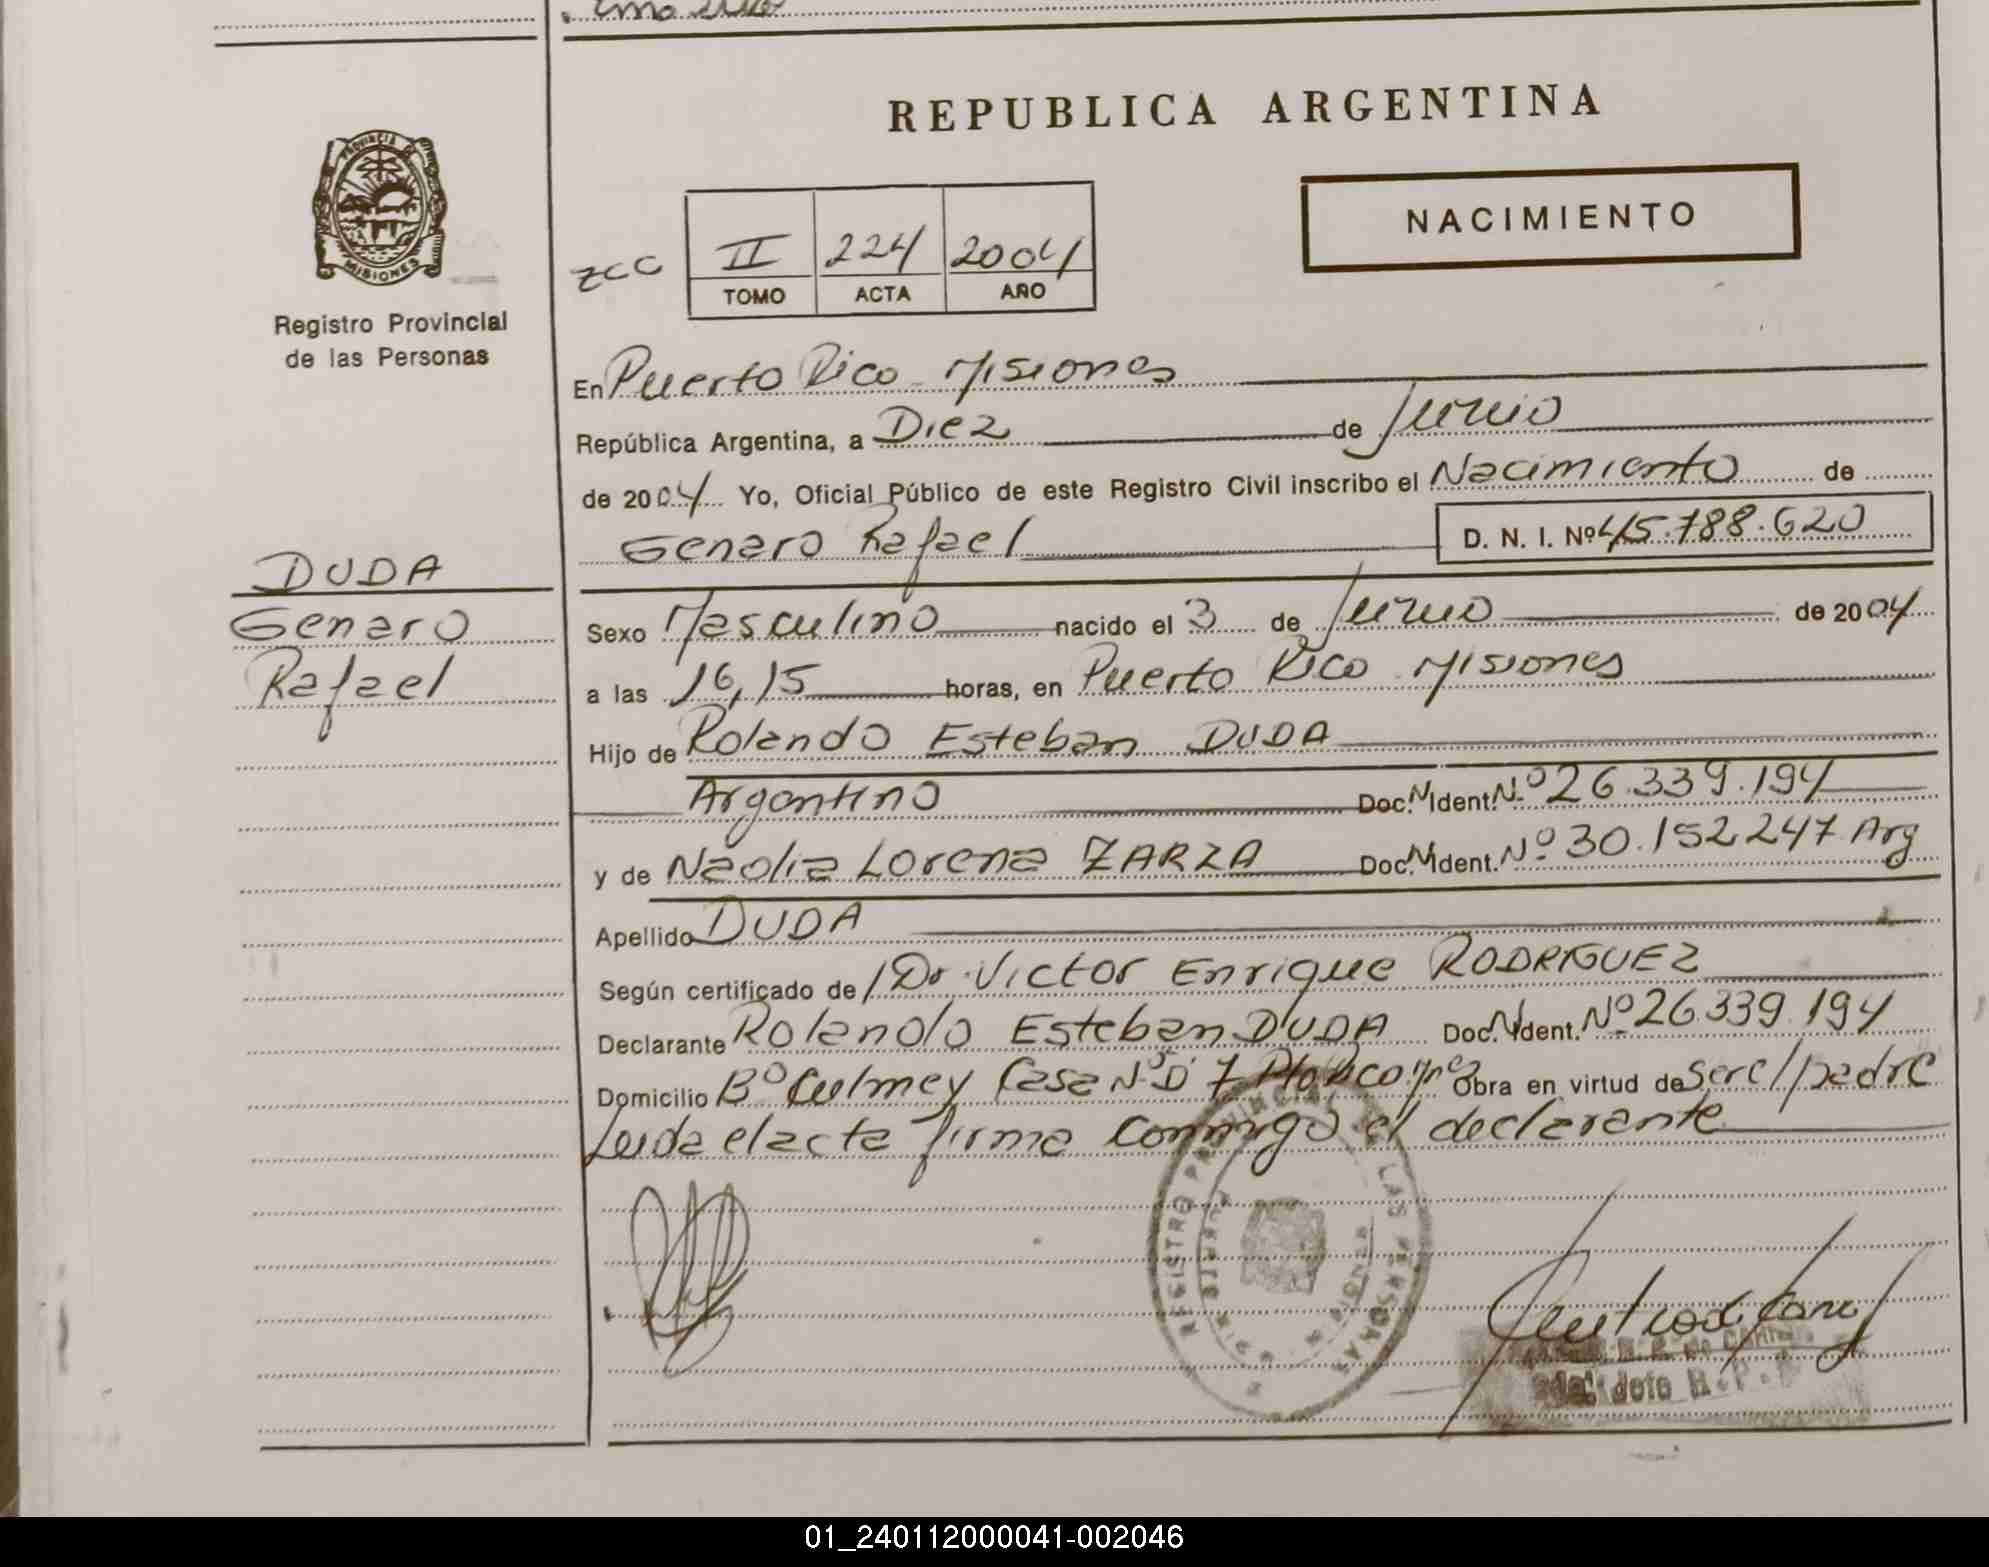 REPUBLICA ARGENTINA
NACIMIENTO
PROVINCIA DE
MISIONES
Registro Provincial
de las Personas
ZCC
II 224 2004
TOMO ACTA AÑO
En Puerto Rico Misiones
República Argentina, a Diez de Junio
de 2004 Yo, Oficial Público de este Registro Civil inscribo el Nacimiento de
Genaro Rafael D. N. I. Nº 45.788.620
DUDA
Genaro
Rafael
Sexo Masculino nacido el 3 de Junio de 2004
a las 16,15 horas, en Puerto Rico Misiones
Hijo de Rolando Esteban DUDA
Argentino Doc. N Ident. Nº 26.339.194
y de Nadia Lorena ZARZA Doc. N Ident. Nº 30.152247 Arg
Apellido DUDA
Según certificado de Dr. Victor Enrique RODRIGUEZ
Declarante Rolando Esteban DUDA Doc. N Ident. Nº 26.339.194
Domicilio Bº Culmey Casa Nº D 7 Pto Rico Mnes Obra en virtud de ser el padre
Leida el acta firma conmigo el declarante
REGISTRO PROVINCIAL LAS PERSONAS
01_240112000041-002046